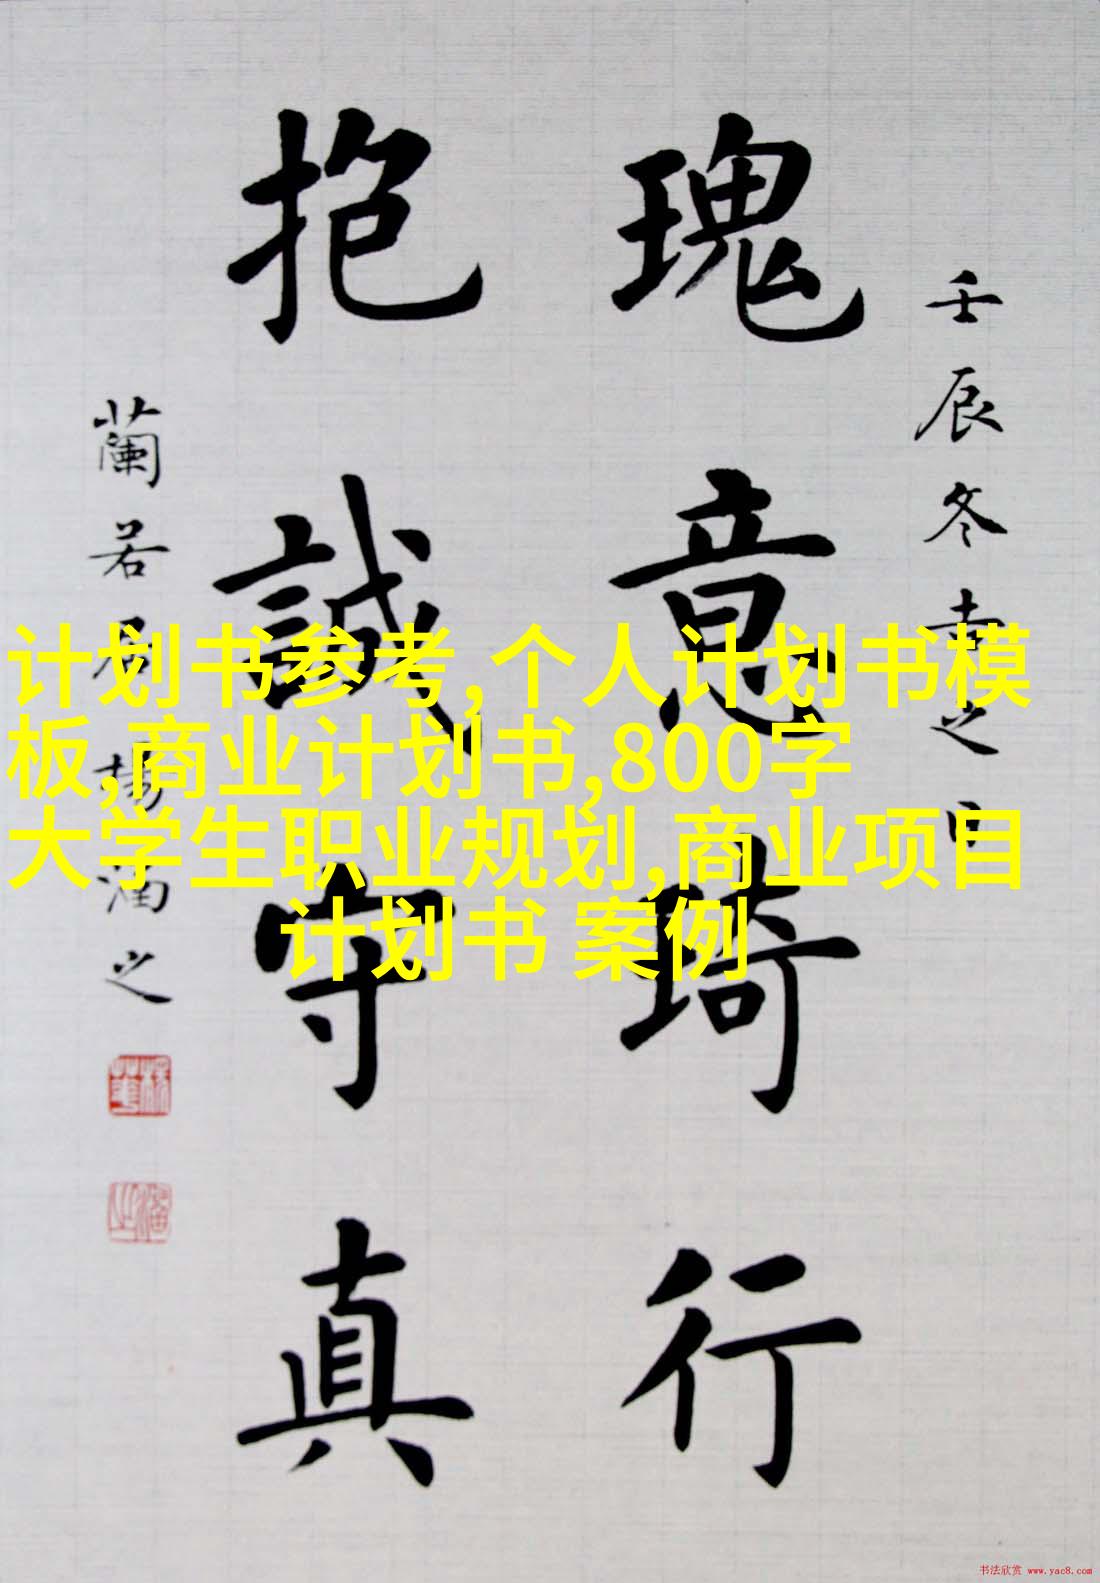 壬辰冬幸之日
瑰意琦行
抱誠守真
蘭若居楊滷之
计划书参考,个人计划书模
板,商业计划书,800字
大学生职业规划,商业项目
计划书 案例
书法欣赏 www.yac8.com